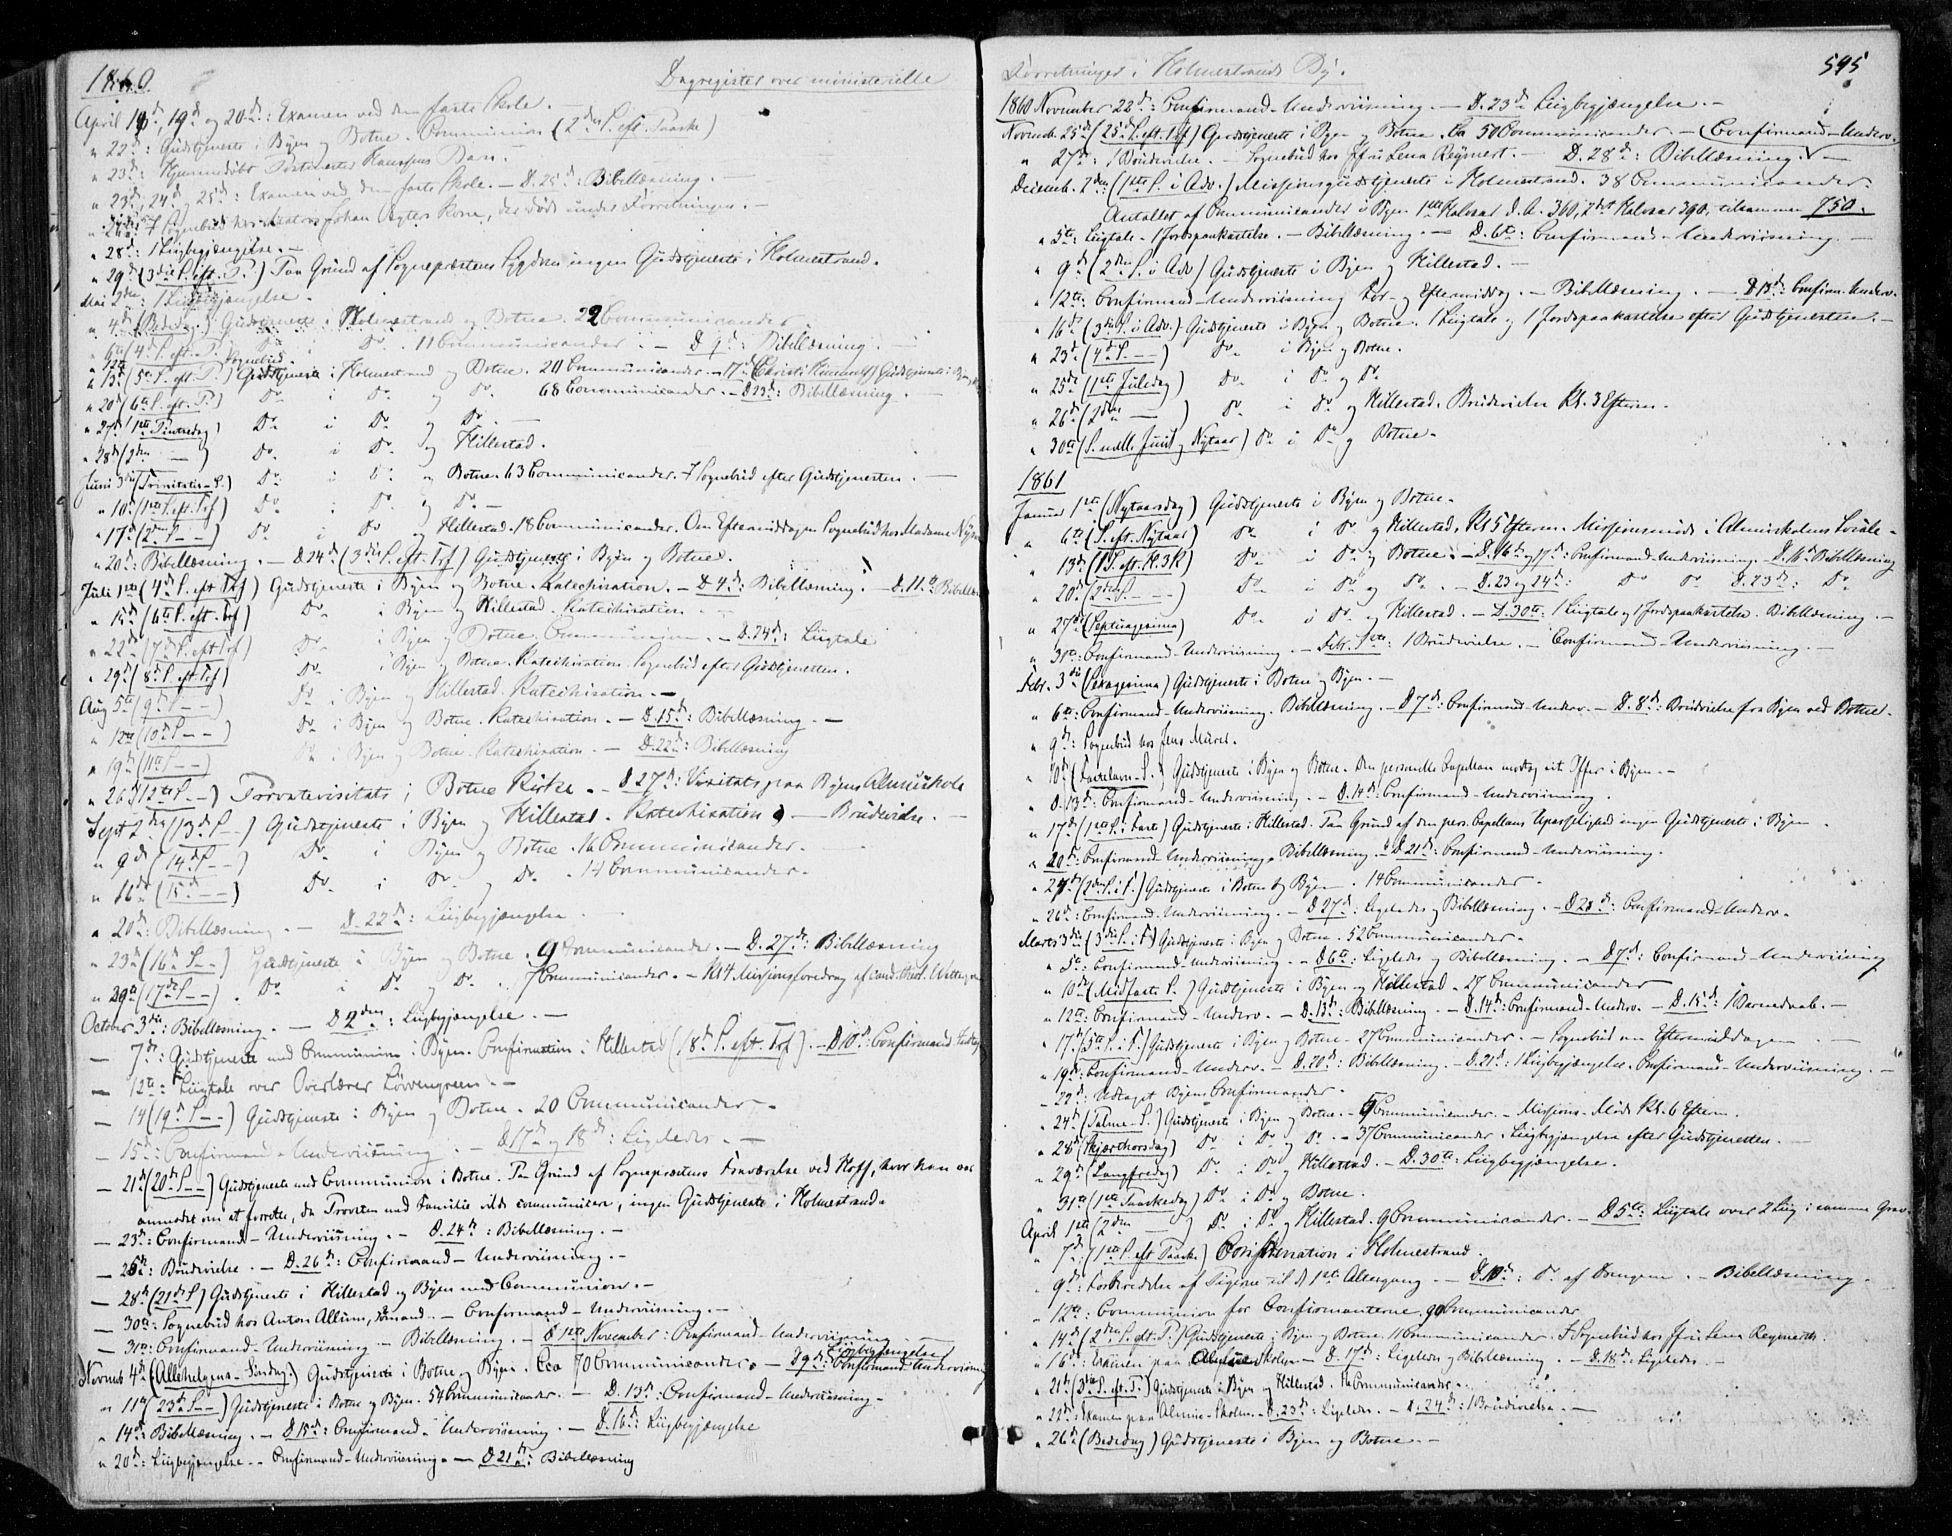 1860.
Dagregister over ministerielle
April 18d, 19d og 20d: Examen ved den faste Skole. —
" 22d: Gudstjeneste i Byen og Botne. Communion (2den S. eft. Paaske)
" 23d: Hjemmedøbt Postmester Hanssens Barn. —
" 23d, 24d og 25d: Examen ved den faste Skole. — D. 25d: Bibellæsning. —
Sognebud hos Johan Kone, der døde under Forretningen. —
" 28d: 1 Liigbegjængelse. —
" 29d (3die S. eft. P.) Paa Grund af Sognepræstens Sygdom ingen Gudstjeneste i Holmestrand.
Mai 2den: 1 Liigbegjængelse.
" 4d (Bededag) Gudstjeneste i Holmestrand og Botne. 22 Communicander
" 6te (4d S. eft. P.) Do. 11 Communicander. — D 9d: Bibellæsning. —
Sognebud.
" 13d (5te S. eft. P.) Gudstjeneste i Holmestrand og Botne. 20 Communicander. — 17d (Christi Himmelf.) Gudstjeneste i Byen
" 20d (6te S. eft. P.) Do. i Do. og Do. 68 Communicander. — D 23d: Bibellæsning. —
" 27d (1ste Pintsedag) Do. i Do. og Do. —
" 28d (2den —) Do. i Do. og Hillestad.
Juni 3die (Trinitatis-S.) Do. i Do. og Botne. 63 Communicander. 7 Sognebud efter Gudstjenesten. —
" 10d (1ste S. eft. Tref) Do. i Do. og Do. —
" 17d (2den S. — —) Do. i Do. og Hillestad. 18 Communicander. Om Eftermiddagen Sognebud hos Madame
" 20d: Bibellæsning. — D 24d (3die S. eft. Tref) Gudstjeneste i Byen og Botne.
Juli 1ste (4d S. eft. Tref) Gudstjeneste i Byen og Botne. Katechisation. — D 4d: Bibellæsning. — D. 11te Bibellæsn
" 15d (6te S. eft. Tref) Do. i Byen og Hillestad. Katechisation. —
" 22d (7d S. eft. Tref) Do. i Byen og Botne. Communion. — D. 24d: Liigtale
" 29d (8d S. eft. Tref) Do. i Byen og Botne. Katechisation. Sognebud efter Gudstjenesten.
Aug 5te (9d S. — —) Do. i Byen og Hillestad. Katechisation. —
" 12te (10d S. — —) Do. i Byen og Botne. Katechisation. — D. 15d: Bibellæsning. —
" 19d (11te S. — —) Do. i Byen og Botne. Katechisation. — D. 22d: Bibellæsning
" 26d (12te S. — —) Provstevisitats i Botne Kirke. — D 27d: Visitats paa Byens Almuskole
Sept 2den (13d S. —) Gudstjeneste i Byen og Hillestad. Katechisation. — Brudevielse. —
" 9d (14d S. — —) Do. i Byen og Botne. 16 Communicander. —
" 16d (15d — —) Do. i Do. og Do. 14 Communicander. —
" 20d: Bibellæsning. — D. 22d: Liigbegjængelse.
" 23d (16d S. —) Gudstjeneste i Byen og Botne. 9 Communicander. — D. 27d: Bibellæsning
" 30te (17d S. — —) Do. i Do. og Do. 7 Communicander. — Kl 4 Missionsforedrag af cand. theol.
October 3die: Bibellæsning. — D 2den: Liigbegjængelse. —
— 7d: Gudstjeneste med Communion i Byen. Confirmation i Hillestad (18d S. eft. Tref). — D 10d: Confirmand
— 12te: Liigtale over Overlærer Løvengreen. —
— 14 (19d S. — —) Gudstjeneste i Byen og Botne. 20 Communicander. —
— 15d: Confirmand-Underviisning. — D 17d og 18d: Ligeledes. —
— 21d (20d S. — —) Gudstjeneste med Communion i Botne. Paa Grund af Sognepræstens Fraværelse ved Hoff, hvor han var
anmodet om at forrette, da Provsten med Familie vilde communicere, ingen Gudstjeneste i Holmestrand.
— 23d: Confirmand-Underviisning. — D. 24d: Bibellæsning. —
— 25d: Brudevielse. — D. 26d: Confirmand-Underviisning. —
— 28d (21d S) Gudstjeneste i Hillestad og Byen med Communion. —
— 30te: Sognebud hos Anton Allum, Sømand. — Confirmand-Underviisning. —
— 31te: Confirmand-Underviisning — Bibellæsning. — D 1ste November: Confirmand-Underviisning
Liigbegjængelse
Novmb 4d (Allehelgens-Søndag) Gudstjeneste i Botne og Byen. Cca 70 Communicander. — D 9d: Confirmand-Underviisning
" 11te (23d S. — —) Gudstjeneste i Botne og Byen. 54 Communicander. — D. 13d: Confirmand-Underviisning —
" 14d: Bibellæsning. — D 15d: Confirmand-Underviisning. — D. 16d: Liigbegjængelse
" 20d: Liigbegjængelse. — Confirmand-Underviisning. — D 21d: Bibellæsning
Forretninger i Holmestrands By.
595
1860 November 22d: Confirmand-Underviisning. — D. 23d Liigbegjængelse. —
Novmb. 25d (25d S. eft. Tref) Gudstjeneste i Byen og Botne. Ca 50 Communicander. — (Confirmand-Underv.
" 27d: 1 Brudevielse. — Sognebud hos Jfr Lena Reynert. — D. 28d: Bibellæsning. —
Decemb. 2den (1ste S. i Adv.) Missionsgudstjeneste i Holmestrand. 38 Communicander.
Antallet af Communicander i Byen 1ste Halvaar d. A. 360, 2det Halvaar 390, tilsammen 750.
" 5te: Liigtale. 1 Jordpaakastelse. — Bibellæsning. — D. 6te: Confirmand-Underviisning. —
" 9d (2den S. i Adv) Gudstjeneste i Byen og Hillestad. —
" 12te: Confirmand-Underviisning For- og Eftermiddag. — Bibellæsning. — D 13d: Confirm. Underv.
" 16d (3die S. i Adv.) Gudstjeneste i Byen og Botne. 1 Liigtale og 1 Jordpaakastelse efter Gudstjenesten. —
" 23d (4d S. — —) Do. i Byen og Botne.
" 25d (1ste Juledag) Do. i Do. og Do.
" 26d (2den —) Do. i Do. og Hillestad. Brudevielse Kl. 3 Efterm.
" 30te (S. mell. Juul og Nytaar) Do. i Do. og Botne.
1861
Januar 1ste (Nytaarsdag) Gudstjeneste i Byen og Botne.
" 6te (S. eft. Nytaar) Do. i Do. og Hillestad. Kl 5 Efterm. Missionsmøde i Almuskolens Locale.
" 13d (1 S. eft. H. 3 K) Do. i Do. og Botne. — D. 16d og 17d: Confirmand-Underviisning. D. 16d Bibellæsning
" 20d (2den S. — —) Do. i Do. og Do. — D. 23 og 24d: Do. Do. D. 23d: Do.
" 27d (Septuagesima) Do. i Do. og Hillestad. — D. 30te: 1 Liigtale og 1 Jordpaakastelse. Bibellæsning. —
" 31te: Confirmand-Underviisning. — Febr. 1ste: 1 Brudevielse. — Confirmand-Underviisning. —
Febr. 3die (Sexagesima) Gudstjeneste i Botne og Byen. —
" 6te: Confirmand-Underviisning. Bibellæsning. — D 7d: Confirmand-Underv. — D. 8d: Brudevielse fra Byen ved Botne.
" 9d: Sognebud hos Jens Murer.
" 10d (Fastelavn-S.) Gudstjeneste i Byen og Botne. Den personelle Capellan modtog sit Offer i Byen. —
" D. 13d: Confirmand-Underviisning. — D. 14d: Confirmand-Underviisning.
" 17d (1ste S. i Faste) Gudstjeneste i Hillestad. Paa Grund af den pers. Capellans Upasselighed ingen Gudstjeneste i Byen.
" 20d: Confirmand-Underviisning. Bibellæsning. — D. 21d: Confirmand-Underviisning.
" 24d (2den S. i F.) Gudstjeneste i Botne og Byen. 14 Communicander.
" 26d: Confirmand-Underviisning. — D 27d: Ligeledes og Bibellæsning. — D 28d: Confirmand-Underv.
Marts 3die (3die S. i F.) Gudstjeneste i Byen og Botne. 52 Communicander.
" 5te: Confirmand-Underviisning. — D 6te: Ligeledes og Bibellæsning. — D 7d: Confirmand-Underviisning
" 10d (Midfaste S.) Gudstjeneste i Byen og Hillestad. 27 Communicander
" 12te: Confirmand-Underv. — D. 13d: Bibellæsning. — D. 14d: Confirmand-Underv. — D. 15d: 1 Barnedaab. —
" 17d (5te S. i F.) Gudstjeneste i Byen og Botne. 27 Communicander. — Sognebud om Eftermiddagen —
" 19d: Confirmand-Underv. — D. 20d: Bibellæsning. — D. 21d: 1 Liigbegjængelse. Confirmand-Underviisning. —
— 22d: Udtaget Byens Confirmander. —
" 24d (Palme-S.) Gudstjeneste i Byen og Botne. — 9 Communicander. — Missions-Møde Kl. 6 Efterm.
" 28d (Skjærthorsdag) Do. i Do. og Do. — 37 Communicander. Liigbegjængelse efter Gudstjenesten. —
" 29d (Langfredag) Do. i Do. og Hillestad. — D. 30te: Liigbegjængelse.
" 31te (1ste Paaskedag) Do. i Do. og Botne.
April 1ste (2den —) Do. i Do. og Hillestad. 9 Communicander. — D 5te: Liigtale over 2 Liig i samme Grav.
" 7d: (1ste S. eft. Paaske) Confirmation i Holmestrand.
" 9d: Forberedelse af Pigerne til d 1ste Altergang. — D. 10d: Do. af Drengene. — Bibellæsning. —
" 12te: Communion for Confirmanterne. 90 Communicander
" 14d (2den S. eft. P.) Gudstjeneste i Byen og Botne. 11 Communicander. 7 Sognebud hos Jfr Lena Reynert.
" 16d: Examen paa Almueskolen — D. 17d: Ligeledes og Bibellæsning. — D. 18d: Ligeledes. —
" 21d (3die S. eft. P.) Gudstjeneste i Byen og Hillestad. Communicander.
" 22d: Examen paa Almue-Skolen. — D. 23d: Ligeledes. — D. 24d: 1 Brudevielse. —
" 26d (Bededag) Gudstjeneste i Byen og Botne. —